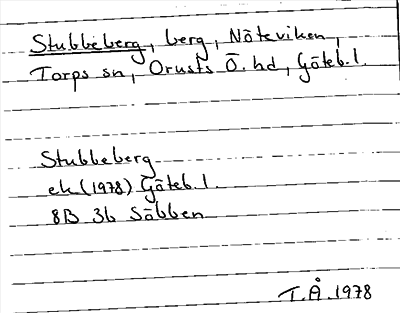 Stubbeberg, berg, Nöteviken,
Torps sn, Orusts Ö. hd, Göteb. l.
Stubbeberg
ek (1978) Göteb. l.
8B 3b Säbben
T.Å. 1978